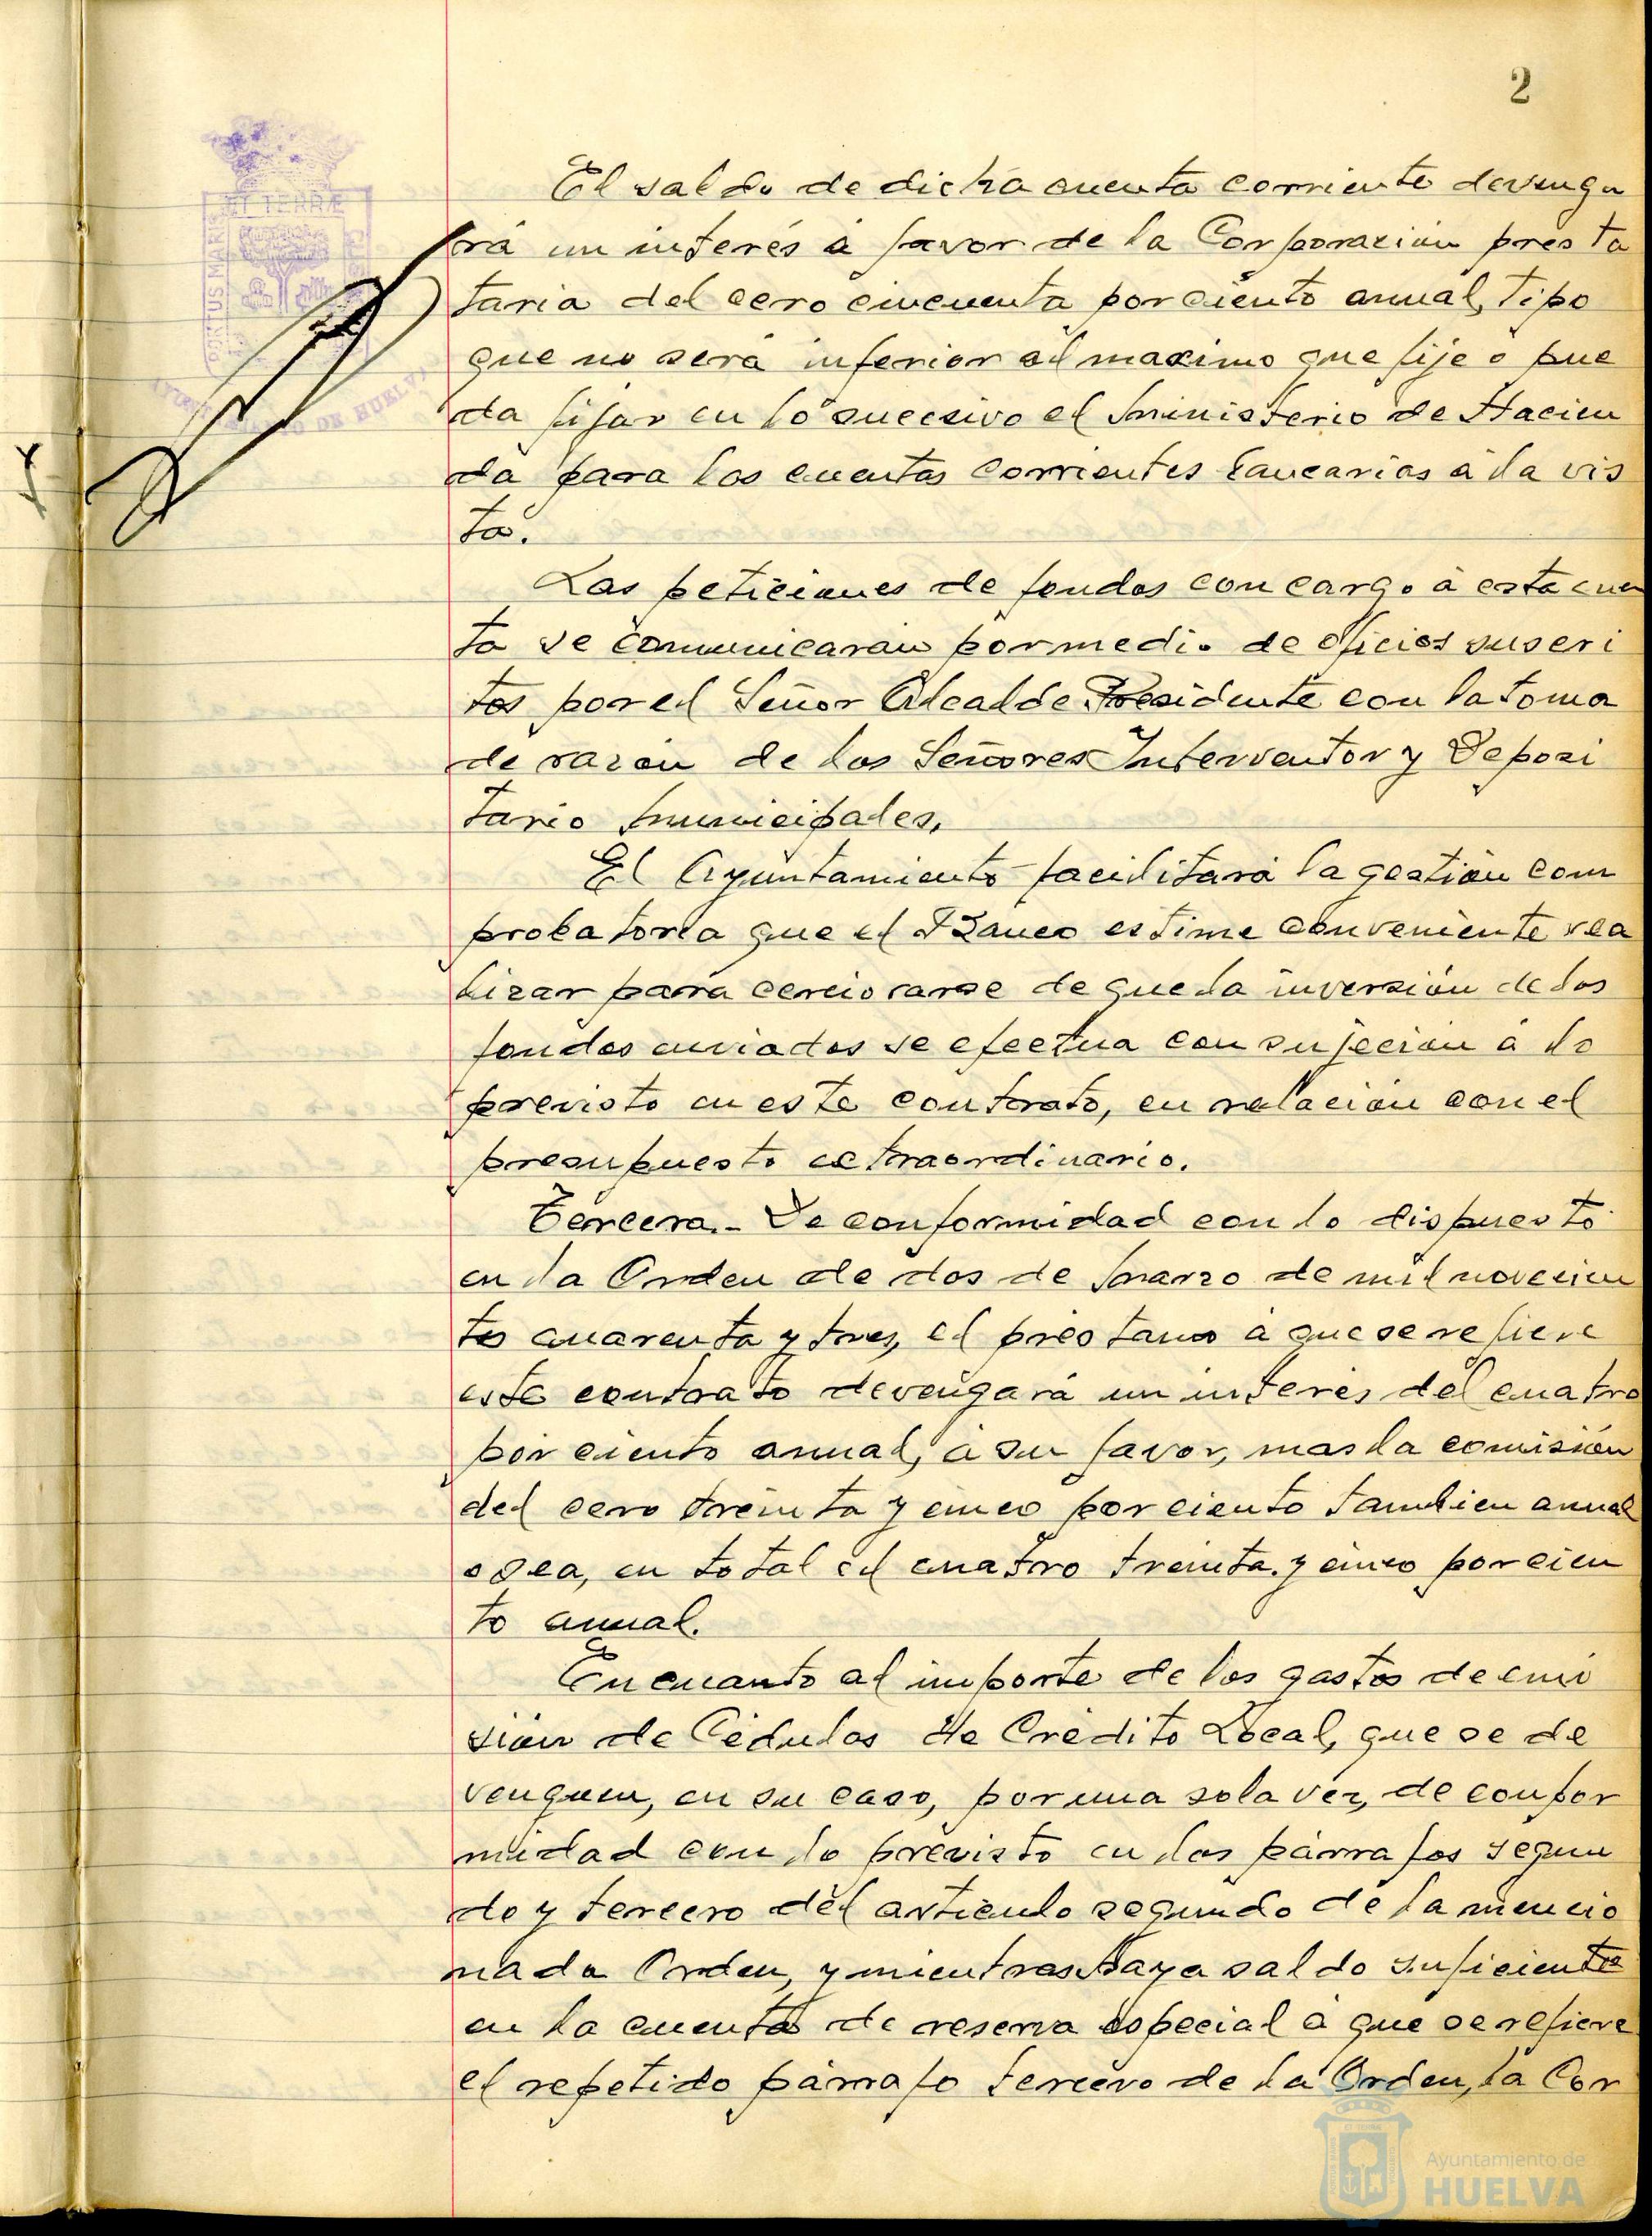 2
El saldo de dicha cuenta corriente devenga
rá un interés á favor de la Corporación presta
taria del cero cincuenta por ciento anual, tipo
que no será inferior al maximo que fije o pue
da fijar en lo sucesivo el Ministerio de Hacien
da para las cuentas corrientes bancarias á la vis
ta.
Las peticiones de fondos con cargo á esta cuen
ta se comunicaran por medio de oficios suscri
tos por el Señor Alcalde Presidente con la toma
de razón de los Señores Interventor y Deposi
tario Municipales.
El Ayuntamiento facilitará la gestión com
probatoria que el Banco estime conveniente rea
lizar para cerciorarse de que la inversión de los
fondos enviados se efectua con sujeción á lo
previsto en este contrato, en relación con el
presupuesto extraordinario.
Tercera.- De conformidad con lo dispuesto
en la Orden de dos de Marzo de mil novecien
tos cuarenta y tres, el préstamo á que se refiere
este contrato devengará un interés del cuatro
por ciento anual, á su favor, mas la comisión
del cero treinta y cinco por ciento tambien anual
o sea, en total el cuatro treinta y cinco por cien
to anual.
En cuanto al importe de los gastos de emi
sión de Cédulas de Crédito Local, que se de
venguen, en su caso, por una sola vez, de confor
midad con lo previsto en los párrafos segun
do y tercero del articulo segundo de la mencio
nada Orden, y mientras haya saldo suficiente
en la cuenta de reserva especial á que se refiere
el repetido párrafo tercero de la Orden, la Cor
ET TERRÆ
PORTUS MARIS
DE HUELVA
Ayuntamiento de
HUELVA